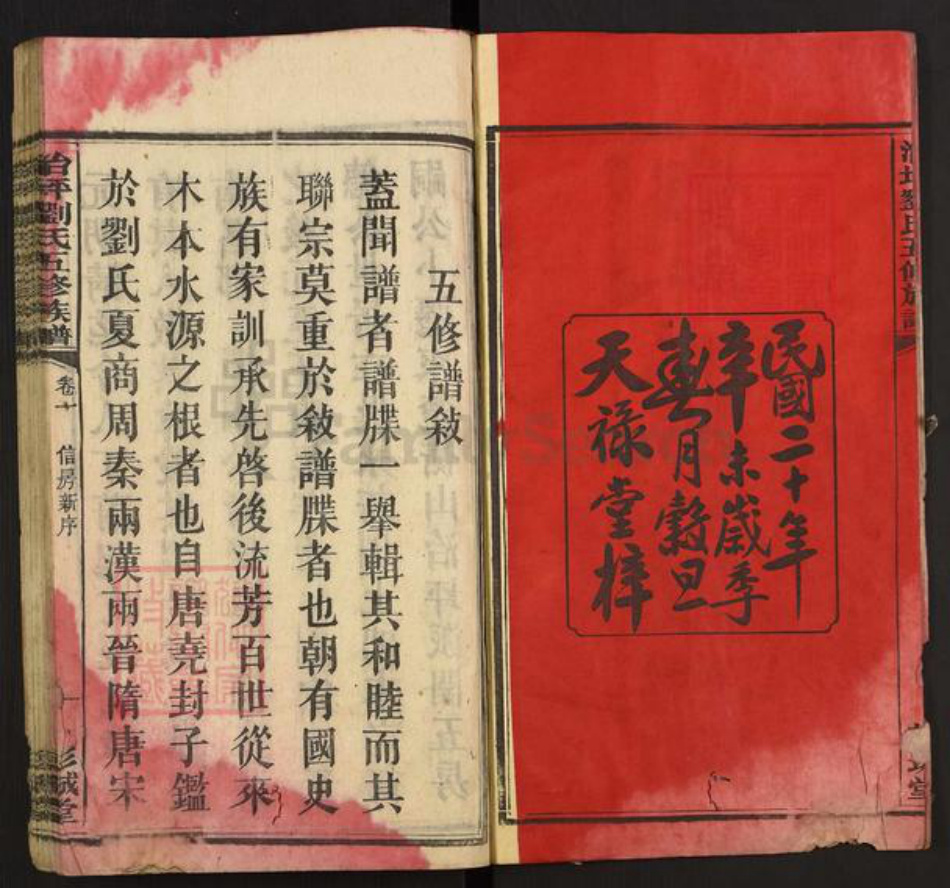 民國二十年
辛未歲季
春月穀旦
天祿堂梓
五修譜敘
蓋聞譜者譜牒一舉輯其和睦而其
聯宗莫重於敘譜牒者也朝有國史
族有家訓承先啓後流芳百世從來
木本水源之根者也自唐堯封子鑑
於劉氏夏商周秦兩漢兩晉隋唐宋
治坪劉氏五修族譜
卷十
信房新序
一
彭城堂